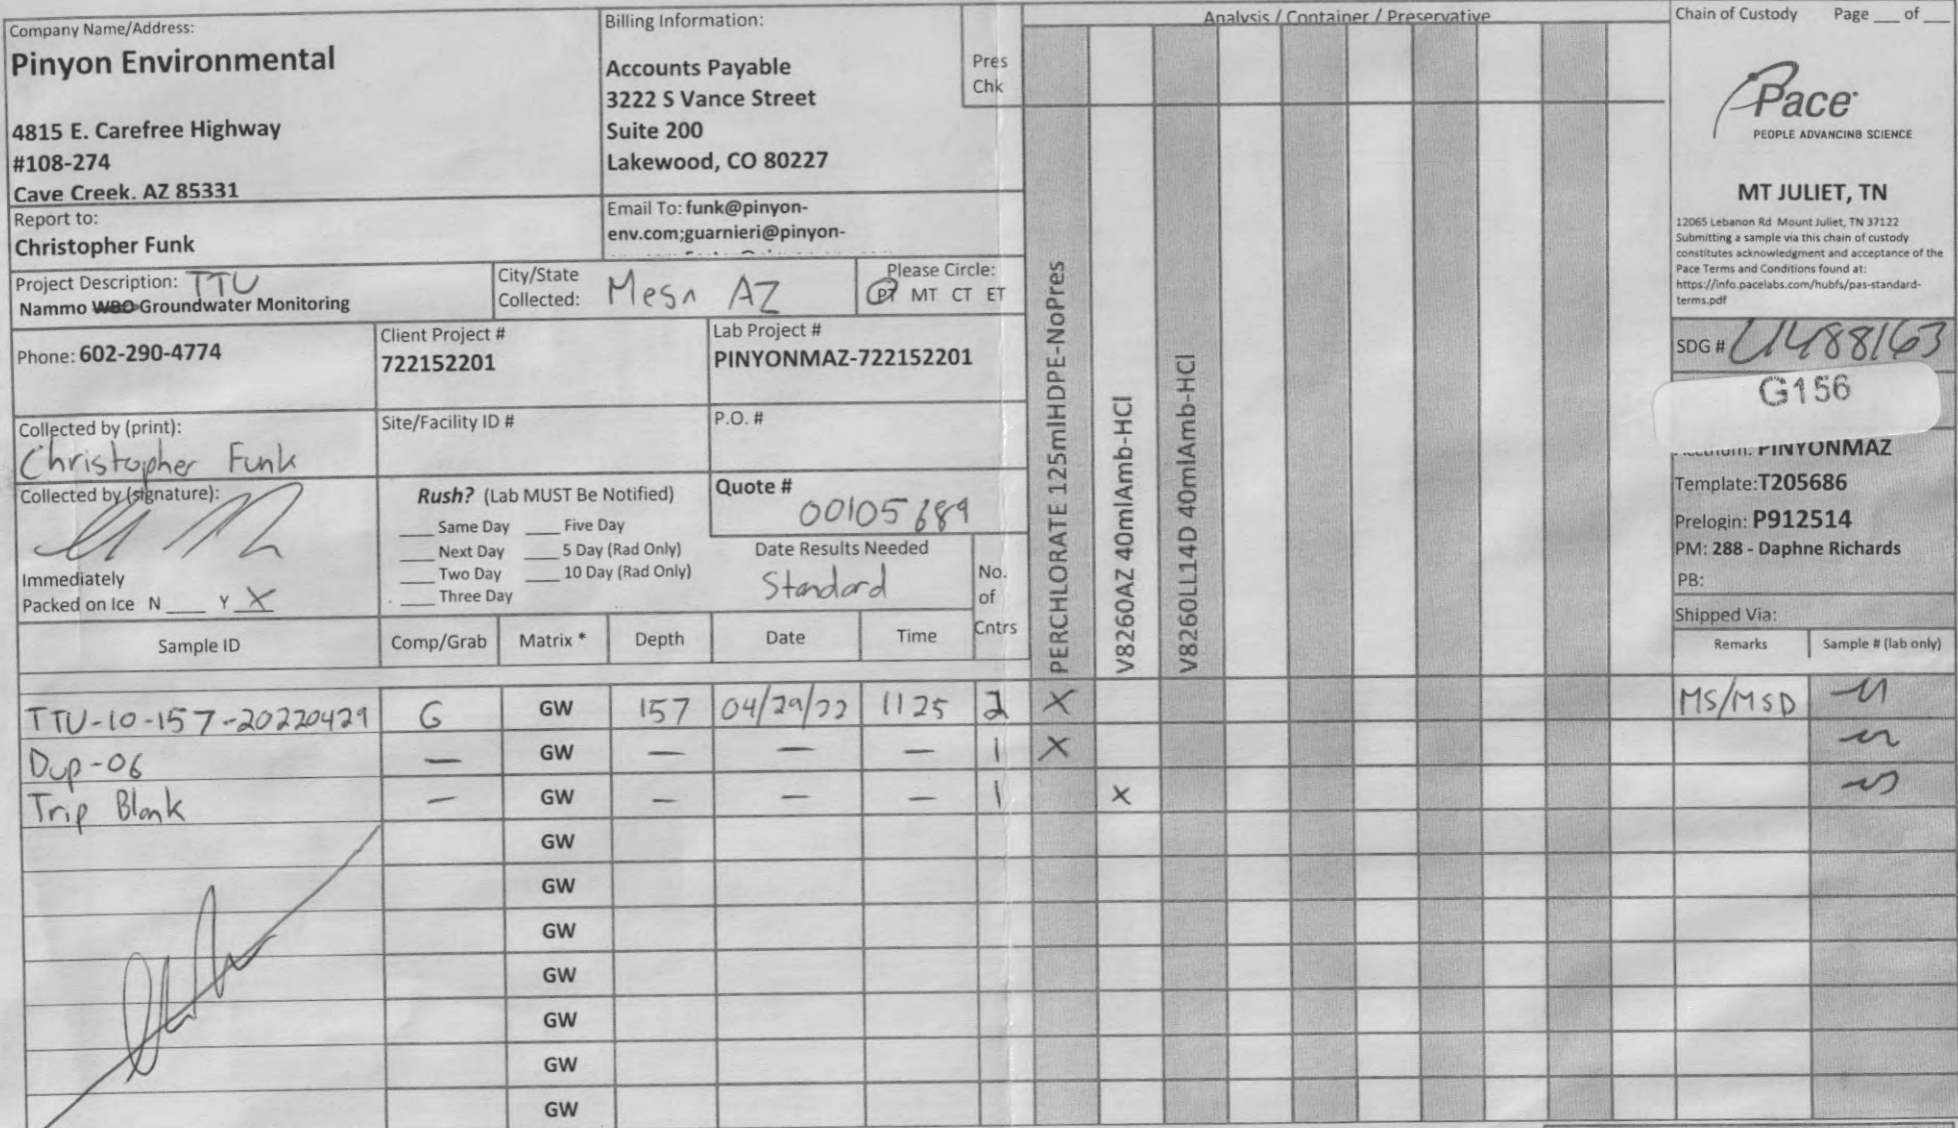 Company Name/Address:
Pinyon Environmental
4815 E. Carefree Highway
#108-274
Cave Creek. AZ 85331
Billing Information:
Accounts Payable
3222 S Vance Street
Suite 200
Lakewood, CO 80227
Pres
Chk
Analysis / Container / Preservative
Chain of Custody Page ___ of ___
Pace
PEOPLE ADVANCING SCIENCE
MT JULIET, TN
12065 Lebanon Rd Mount Juliet, TN 37122
Submitting a sample via this chain of custody
constitutes acknowledgment and acceptance of the
Pace Terms and Conditions found at:
https://info.pacelabs.com/hubfs/pas-standard-
terms.pdf
Report to:
Christopher Funk
Email To: funk@pinyon-
env.com;guarnieri@pinyon-
Project Description: TTU
Nammo WBO Groundwater Monitoring
City/State
Collected: Mesa AZ
Please Circle:
PT MT CT ET
Phone: 602-290-4774
Client Project #
722152201
Lab Project #
PINYONMAZ-722152201
SDG #
G156
PINYONMAZ
Template:T205686
Prelogin: P912514
PM: 288 - Daphne Richards
PB:
Shipped Via:
Collected by (print):
Christopher Funk
Site/Facility ID #
P.O. #
Collected by (signature):
Rush? (Lab MUST Be Notified)
___ Same Day ___ Five Day
___ Next Day ___ 5 Day (Rad Only)
___ Two Day ___ 10 Day (Rad Only)
___ Three Day
Quote #
00105689
Date Results Needed
Standard
No.
of
Cntrs
Immediately
Packed on Ice N ___ Y X
PERCHLORATE 125mlHDPE-NoPres
V8260AZ 40mlAmb-HCl
V8260LL14D 40mlAmb-HCl
Sample ID Comp/Grab Matrix * Depth Date Time Remarks Sample # (lab only)
TTU-10-157-20220429 G GW 157 04/29/22 1125 2 X MS/MSD
Dup-06 — GW — — — 1 X
Trip Blank — GW — — — 1 X
GW
GW
GW
GW
GW
GW
GW